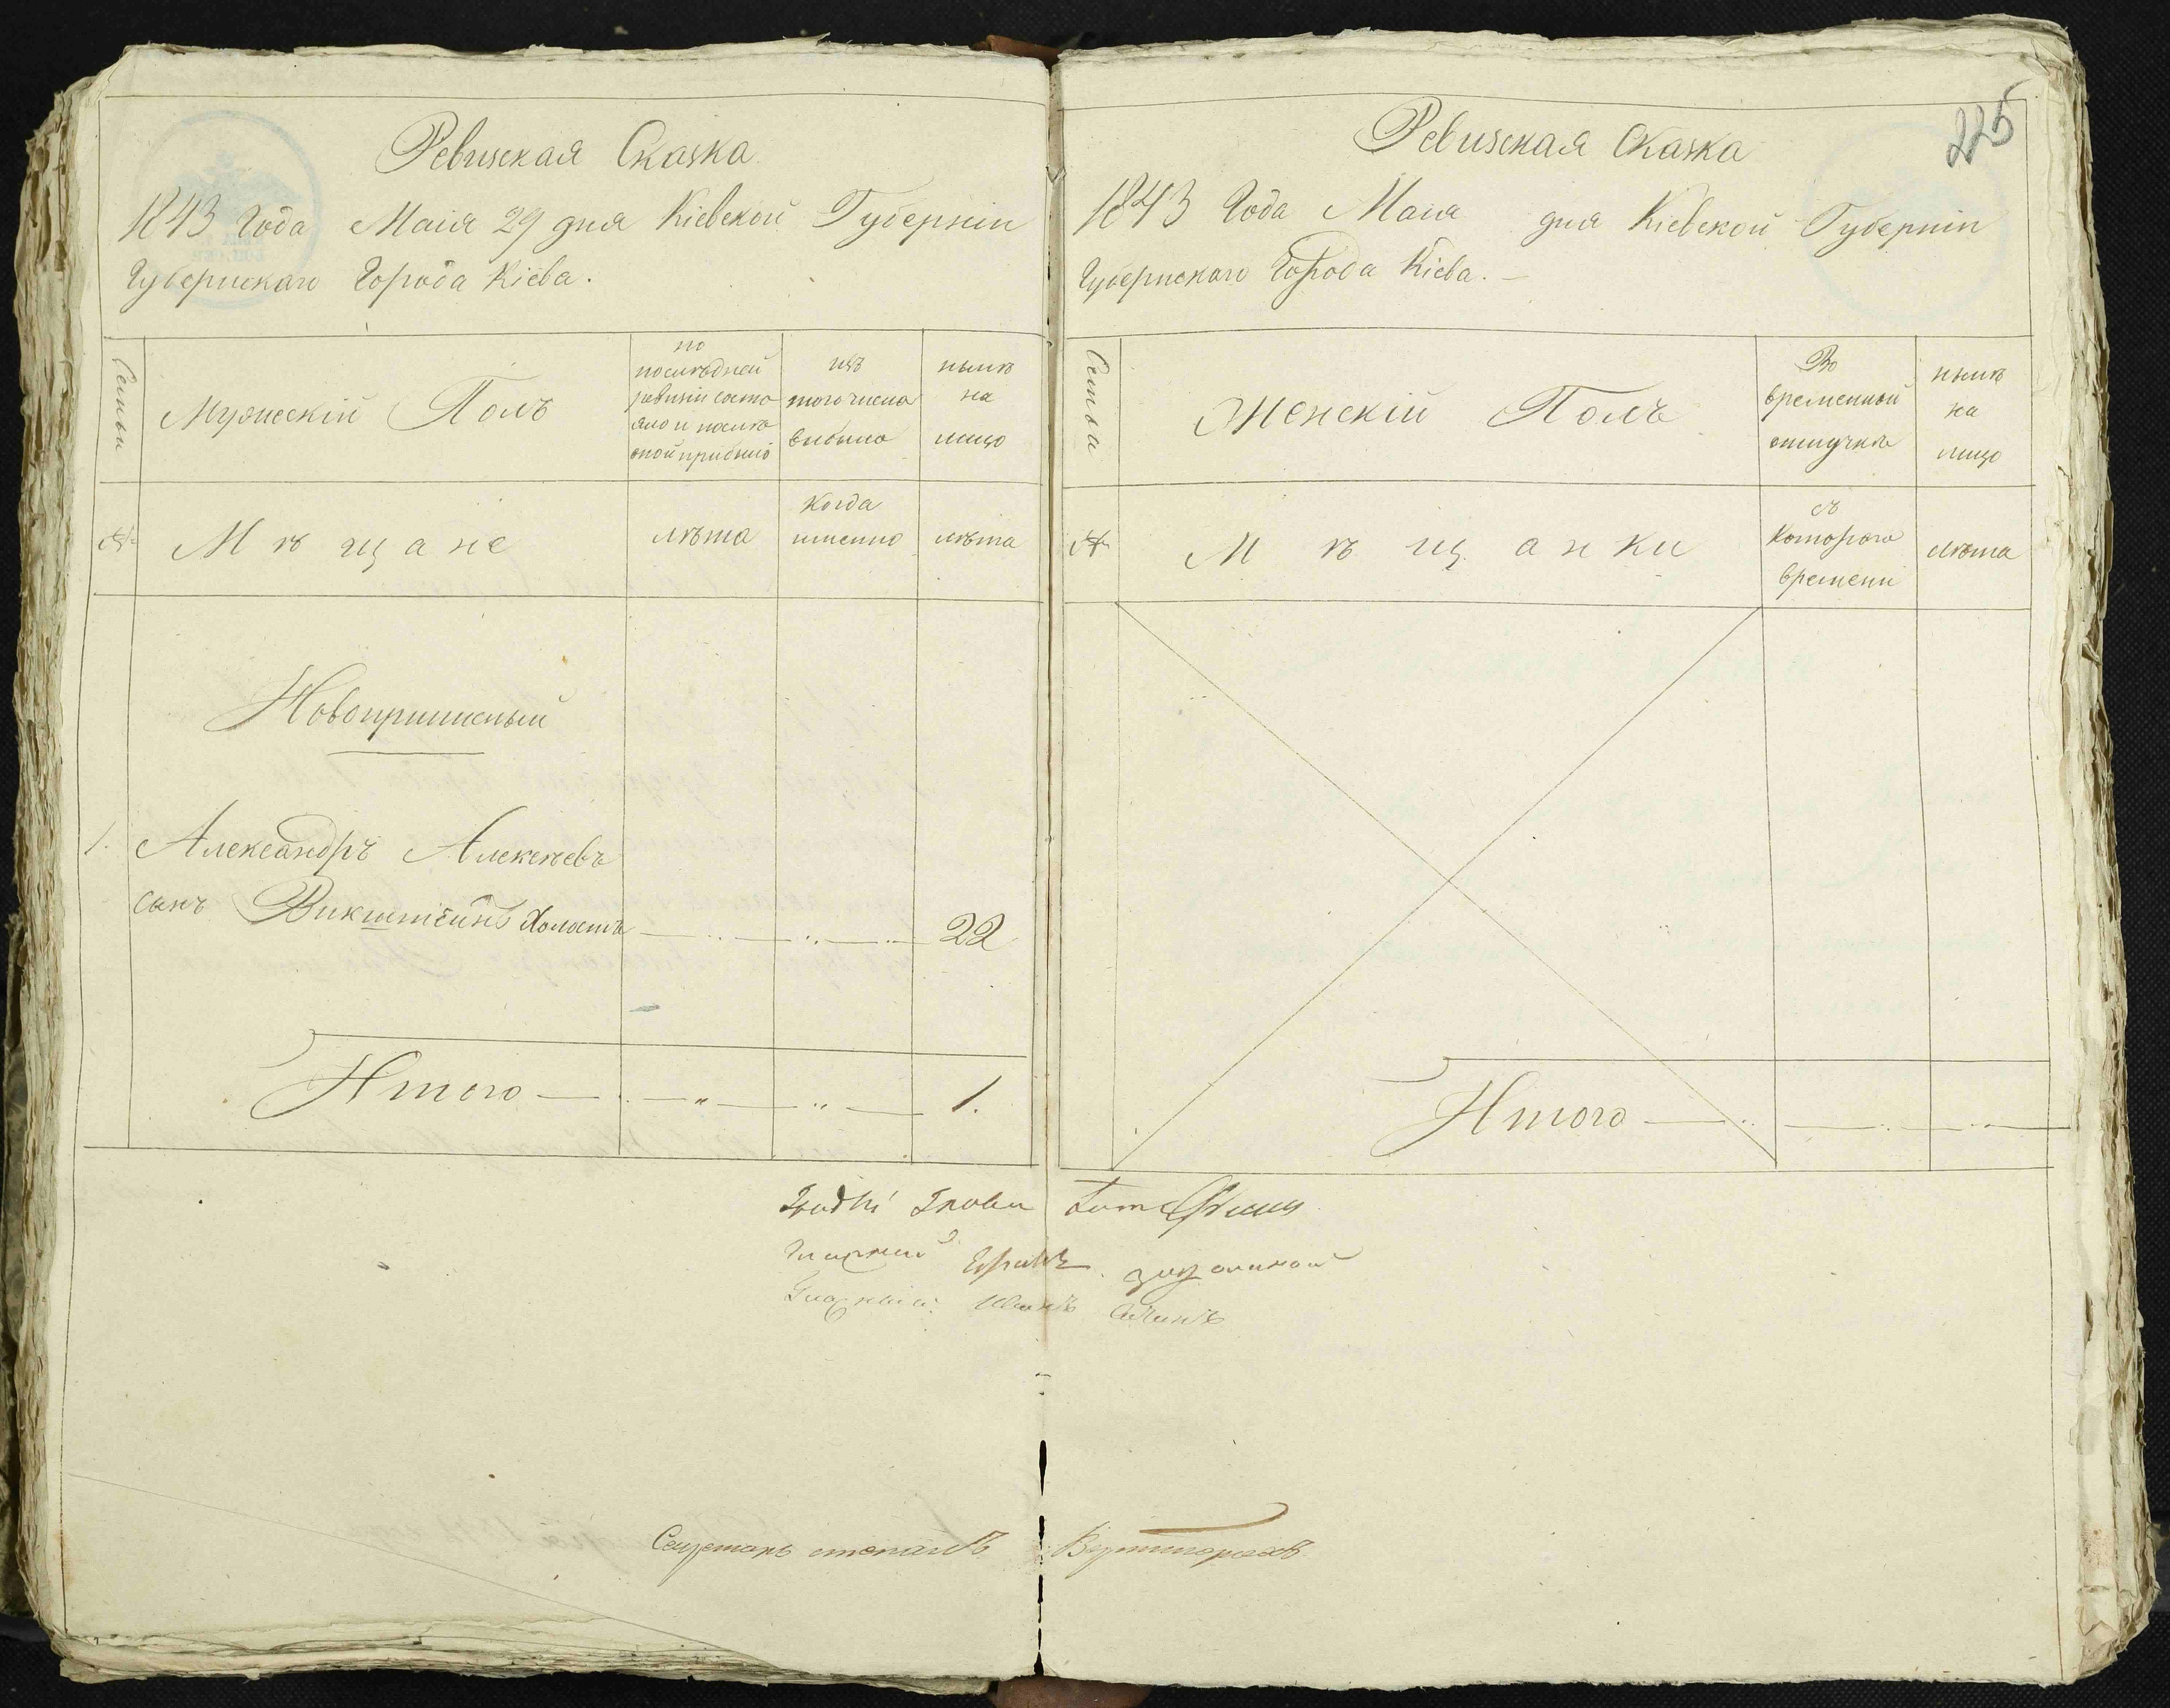 Ревизская Сказка
1843 Года Маія 29 дня Кіевской Губерніи
Губернскаго Города Кіева.
Семьи
Мужескій Полъ
по
последней
ревизіи состо
яло и после
оной прибыло
изъ
того числа
выбыло
ныне
на
лицо
№
Мѣщане
лѣта
когда
именно
лѣта
Новоприписный
1. Александръ Алексѣевъ
сынъ Викштейнъ Холостъ 22
Итого 1.
225
Ревизская Сказка
1843 Года Маія дня Кіевской Губерніи
Губернскаго Города Кіева.
Семьи
Женскій Полъ
Во
временной
отлучкѣ
ныне
на
лицо
№
Мѣщанки
съ
Котораго
времени
лѣта
Итого
Гласный
Гласный Иванъ
Секретарь